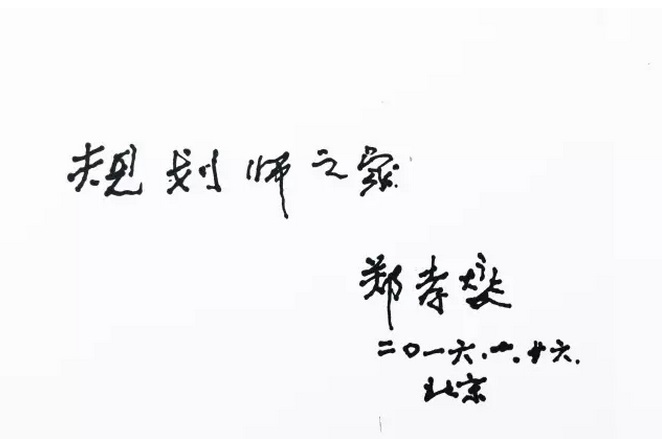 规划师之家
郑孝燮
二〇一六.一.廿六.
北京